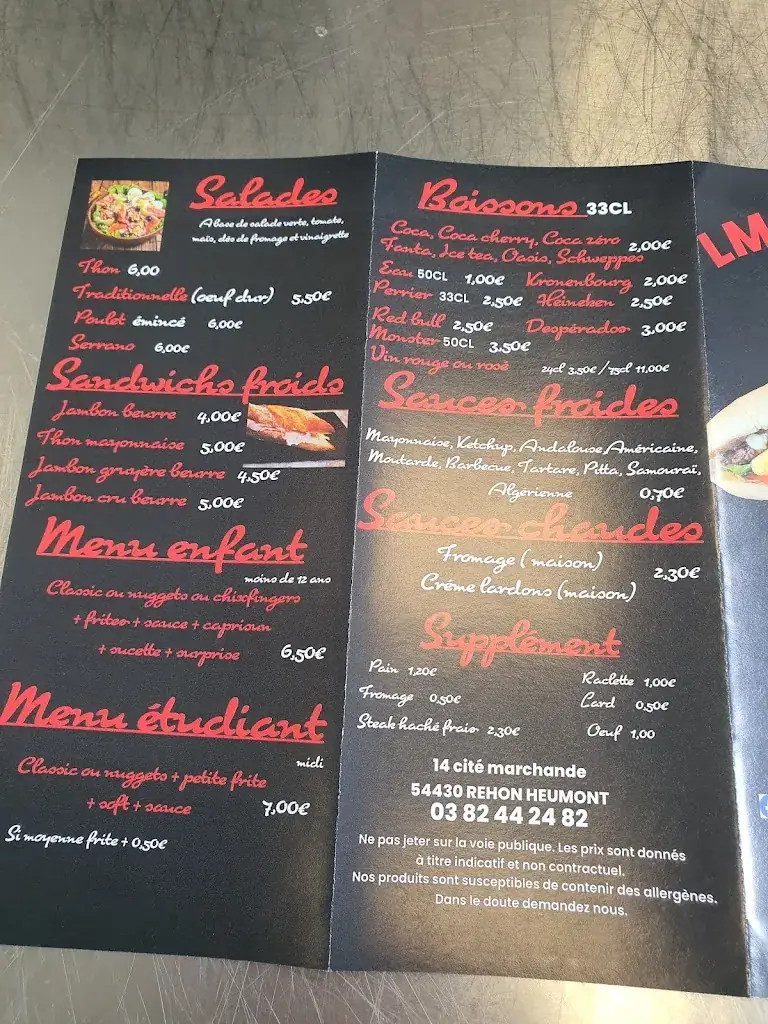 Salades
A base de salade verte, tomate,
maïs, dés de fromage et vinaigrette
Thon 6,00
Traditionnelle (oeuf dur) 5,50€
Poulet émincé 6,00€
Serrano 6,00€
Sandwichs froids
Jambon beurre 4,00€
Thon mayonnaise 5,00€
Jambon gruyère beurre 4,50€
Jambon cru beurre 5,00€
Menu enfant
moins de 12 ans
Classic ou nuggets ou chixfingers
+ frites + sauce + caprisun
+ sucette + surprise 6,50€
Menu étudiant
midi
Classic ou nuggets + petite frite
+ soft + sauce 7,00€
Si moyenne frite + 0,50€
Boissons 33CL
Coca, Coca cherry, Coca zéro
Fanta, Ice tea, Oasis, Schweppes 2,00€
Eau 50CL 1,00€ Kronenbourg 2,00€
Perrier 33CL 2,50€ Heineken 2,50€
Red bull 2,50€ Despérados 3,00€
Monster 50CL 3,50€
Vin rouge ou rosé 24cl 3,50€ / 75cl 11,00€
Sauces froides
Mayonnaise, Ketchup, Andalouse, Américaine,
Moutarde, Barbecue, Tartare, Pitta, Samouraï,
Algérienne 0,70€
Sauces chaudes
Fromage (maison)
Crème lardons (maison) 2,30€
Supplément
Pain 1,20€ Raclette 1,00€
Fromage 0,50€ Lard 0,50€
Steak haché frais 2,30€ Oeuf 1,00
14 cité marchande
54430 REHON HEUMONT
03 82 44 24 82
Ne pas jeter sur la voie publique. Les prix sont donnés
à titre indicatif et non contractuel.
Nos produits sont susceptibles de contenir des allergènes.
Dans le doute demandez nous.
LM